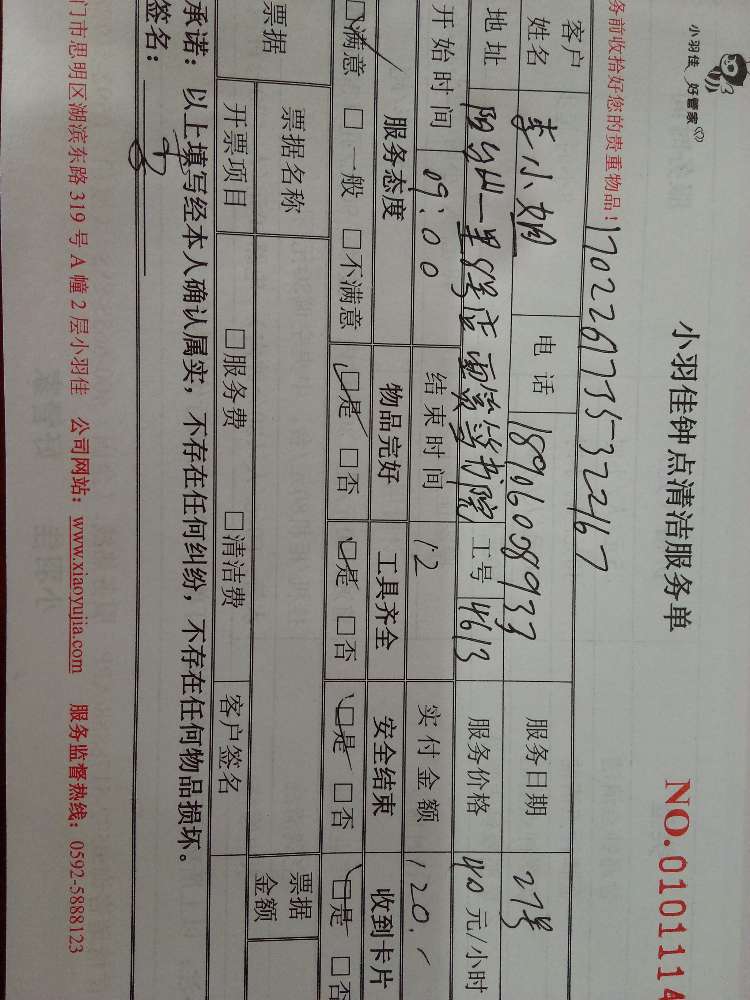 小羽佳 好管家
小羽佳钟点清洁服务单
NO.0101114
务前收拾好您的贵重物品!
客户姓名 李小姐 电话 18960089 服务日期 27号
地址 工号 4613 服务价格 40 元/小时
开始时间 09:00 结束时间 12 实付金额 120.
服务态度 物品完好 工具齐全 安全结束 收到卡片
□满意 □一般 □不满意 □是 □否 □是 □否 □是 □否 □是 □否
票据 票据名称 票据金额
开票项目 □服务费 □清洁费 客户签名
承诺:以上填写经本人确认属实,不存在任何纠纷,不存在任何物品损坏。
签名:
门市思明区湖滨东路 319 号 A 幢 2 层小羽佳 公司网站:www.xiaoyujia.com 服务监督热线:0592-5888123